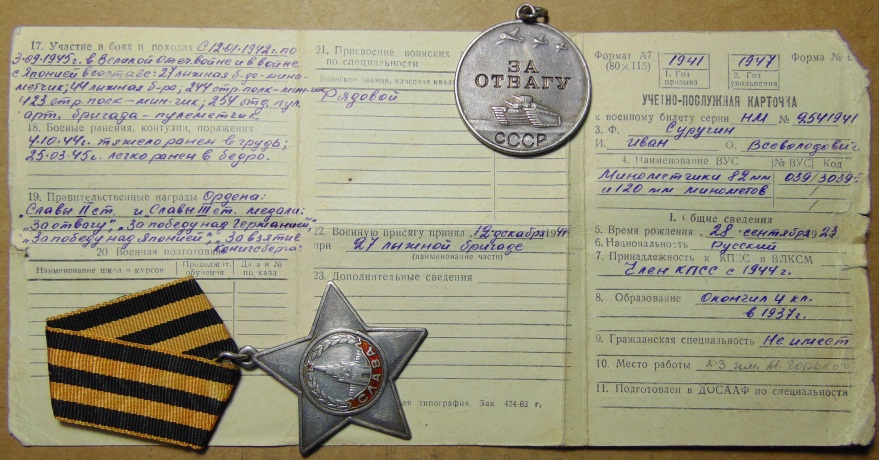 17. Участие в боях и походах С 12·01·1942г. по
3·09·1945г. в Великой Отеч. войне и в войне
с Японией в составе: 27 лыжная б-да-мино-
метчик; 44 лыжная б-ра; 244 стр. полк-мин-чик
423 стр. полк-мин-чик; 254 отд. пул.
арт. бригада-пулеметчик.
18. Боевые ранения, контузии, поражения
4·10·44г. тяжело ранен в грудь;
25·03·45г. легко ранен в бедро.
19. Правительственные награды Ордена:
"Славы II ст. и Славы III ст. медали:
"За отвагу", "За победу над Германией",
"За победу над Японией", "За взятие
Кенигсберга:
20 Военная подготовка
Наименование школ и курсов
Продолжит. обучения
Дата и № приказа
21. Присвоение воинских
по специальности
Воинское звание, классная
Рядовой
22. Военную присягу принял 12 декабря 1941
при 27 лыжной бригаде
(наименование части)
23. Дополнительные сведения
типография. Зак. 424-62 г,
ЗА
ОТВАГУ
СССР
СЛАВА
Формат А7
(80×115)
1941
1. Год призыва
1947
2. Год увольнения
Форма №
УЧЕТНО-ПОСЛУЖНАЯ КАРТОЧКА
к военному билету серии НМ № 9541941
3. Ф. Суругин
И. Иван О. Всеволодович
4. Наименование ВУС № ВУС Код
Минометчики 82 мм 039/3039
и 120 мм минометов
I. Общие сведения
5. Время рождения 28 сентября 1923
6. Национальность Русский
7. Принадлежность к КПСС и ВЛКСМ
Член КПСС с 1944 г.
8. Образование Окончил 4 кл.
в 1937г.
9. Гражданская специальность Не имеет
10. Место работы к-з им. М. Горького
11. Подготовлен в ДОСААФ по специальности